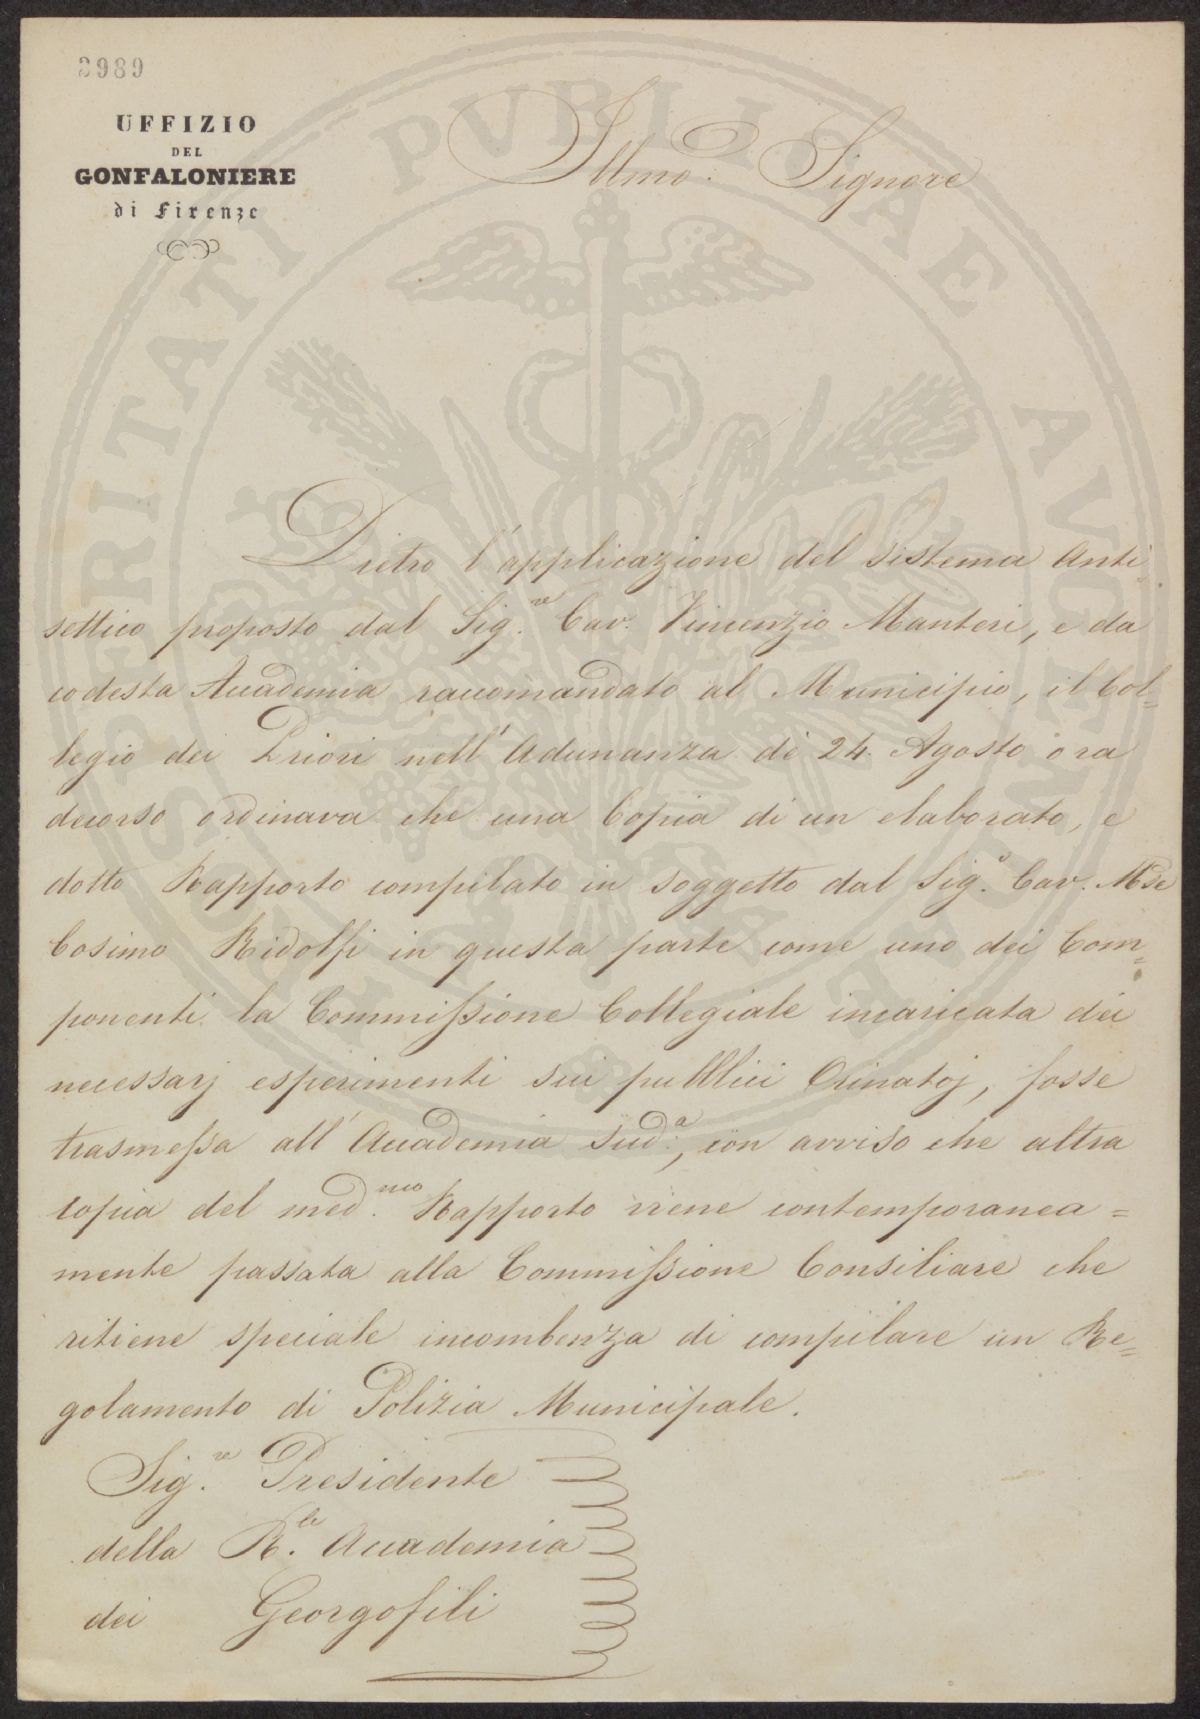 3989
UFFIZIO
DEL
GONFALONIERE
di Firenze
Illmo: Signore
Dietro l'applicazione del sistema Anti=
settico proposto dal Sig.re Cav. Vincenzio Manteri, e da
codesta Accademia raccomandato al Municipio, il Col=
legio dei Priori nell'Adunanza de 24. Agosto ora
decorso ordinava che una Copia di un elaborato, e
dotto Rapporto compilato in soggetto dal Sig.e Cav. Mse
Cosimo Ridolfi in questa parte come uno dei Com=
ponenti la Commissione Collegiale incaricata dei
necessarj esperimenti sui pubblici Orinatoj, fosse
trasmessa all'Accademia sud:a, con avviso che altra
copia del med.mo Rapporto viene contemporanea=
mente passata alla Commissione Consiliare che
ritiene speciale incombenza di compilare un Re=
golamento di Polizia Municipale.
Sig.re Presidente
della R.le Accademia
dei Georgofili
PROSPERITATI PVBLICAE AVGENDAE